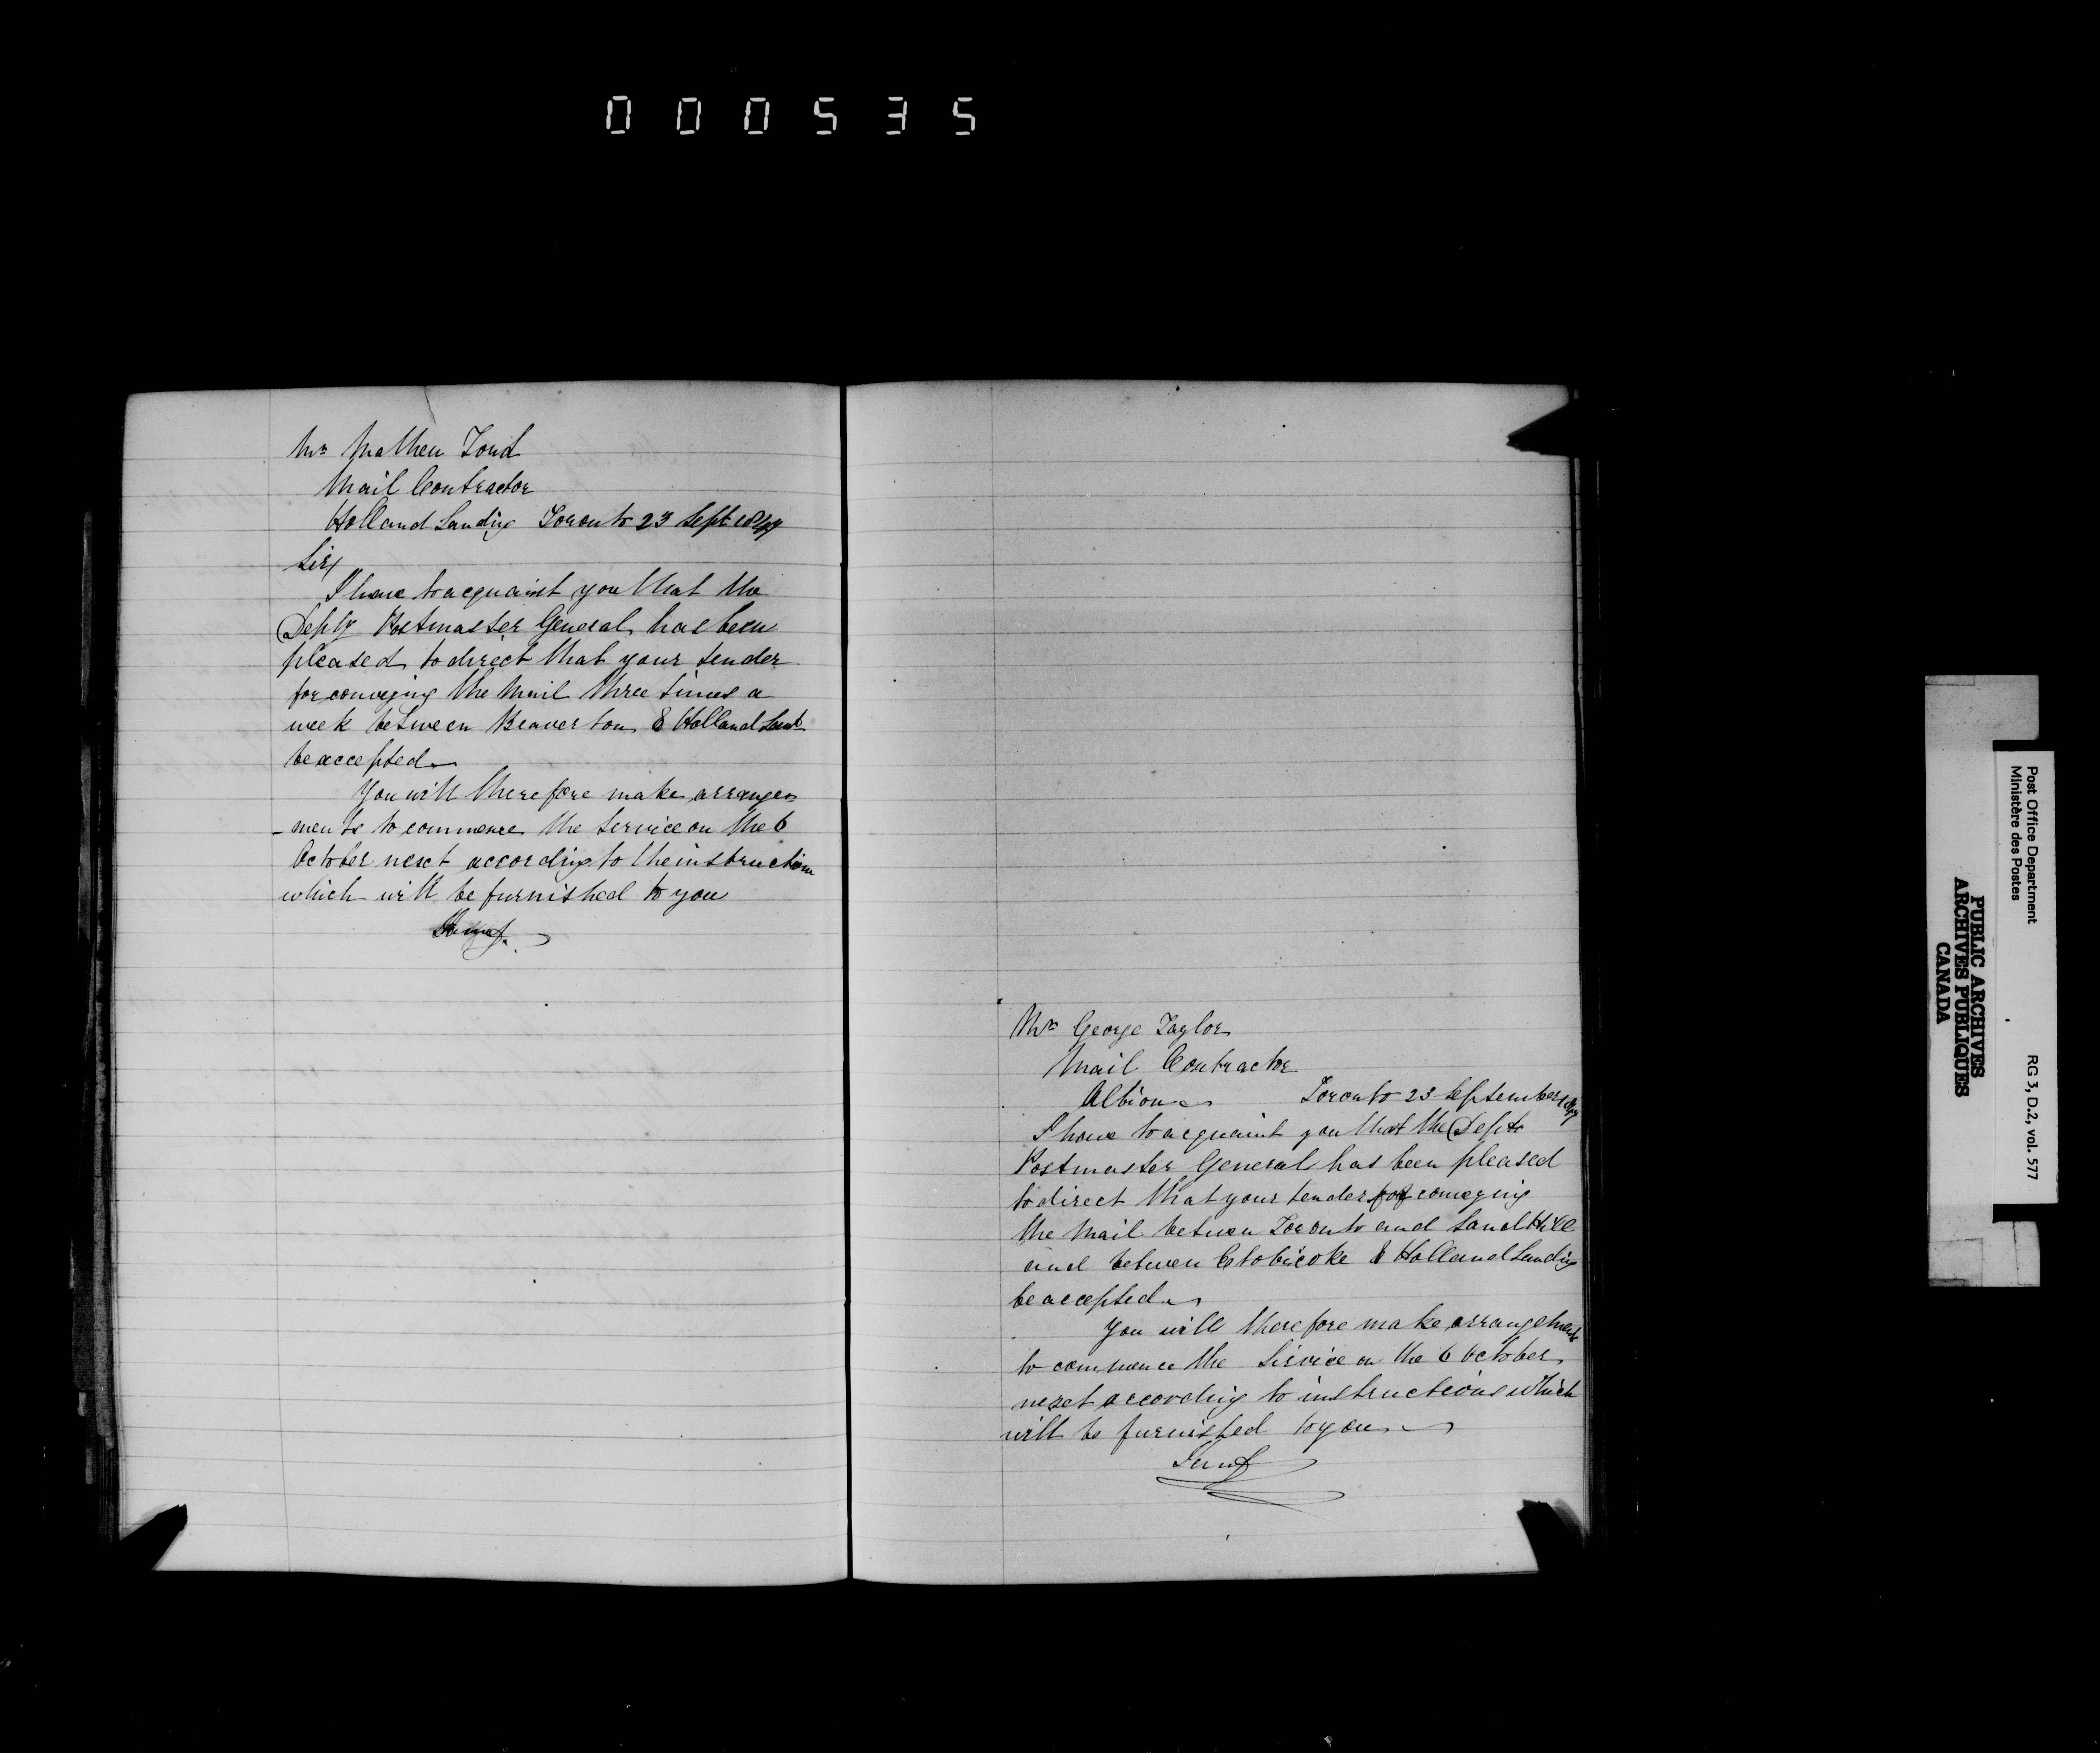 000535
Mr Mathew Ford
Mail Contractor
Holland Landing Toronto 23 Sept 1847
Sir/
I have to acquaint you that the
Depty Postmaster General has been
pleased to direct that your tender
for conveying the Mail three times a
week between Beaverton & Holland Land
be accepted
You will therefore make arrange
-ments to commence the Service on the 6
October next according to the instruction
which will be furnished to you
Mr George Taylor
Mail Contractor
Albion Toronto 23 September 1847
I have to acquaint you that the Depty
Postmaster General has been pleased
to direct that your tender for conveying
the Mail between Toronto and Sand Hill
and between Etobicoke & Holland Landing
be accepted
You will therefore make arrangements
to commence the Service on the 6 October
next according to instructions which
will be furnished to you
Post Office Department
Ministère des Postes
RG 3, D.2, vol. 577
PUBLIC ARCHIVES
ARCHIVES PUBLIQUES
CANADA